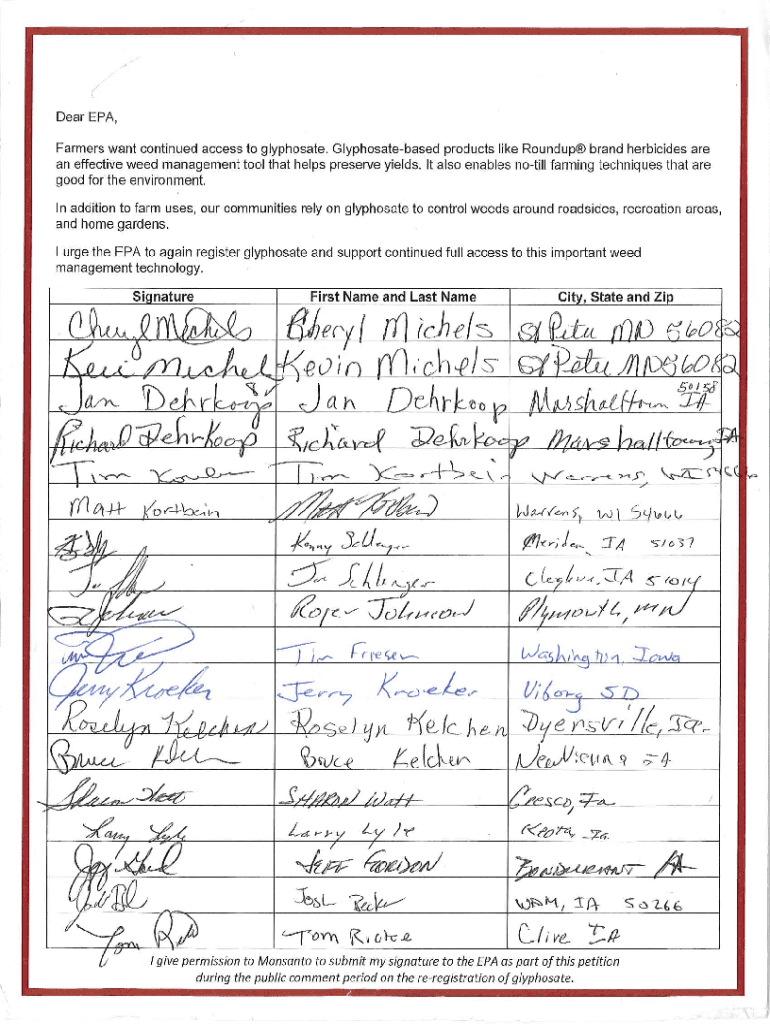 Dear EPA,
Farmers want continued access to glyphosate. Glyphosate-based products like Roundup® brand herbicides are
an effective weed management tool that helps preserve yields. It also enables no-till farming techniques that are
good for the environment.
In addition to farm uses, our communities rely on glyphosate to control weeds around roadsides, recreation areas,
and home gardens.
I urge the EPA to again register glyphosate and support continued full access to this important weed
management technology.
Signature First Name and Last Name City, State and Zip
Cheryl Michels Cheryl Michels St Peter MN 56082
Kevin Michels Kevin Michels St Peter MN 56082
Jan Dehrkoop Jan Dehrkoop Marshalltown IA 50158
Richard Dehrkoop Richard Dehrkoop Marshalltown, IA
Tim Tim Kortbein Warrens, WI 54666
Matt Kortbein Warrens, WI 54666
Kenny Schlenger Meriden, IA 51037
Schlenger Cleghorn, IA 51014
Roger Johnson Plymouth, MN
Tim Friesen Washington, Iowa
Jerry Kroeker Jerry Kroeker Viborg SD
Roselyn Kelchen Roselyn Kelchen Dyersville, Ia.
Bruce Bruce Kelchen New Vienna IA
Sharon Watt SHARON Watt Cresco, Ia
Larry Lyle Larry Lyle Keota, Ia.
JEFF BONDURANT IA
Josh Becker WDM, IA 50266
Tom Tom Clive IA
I give permission to Monsanto to submit my signature to the EPA as part of this petition
during the public comment period on the re-registration of glyphosate.